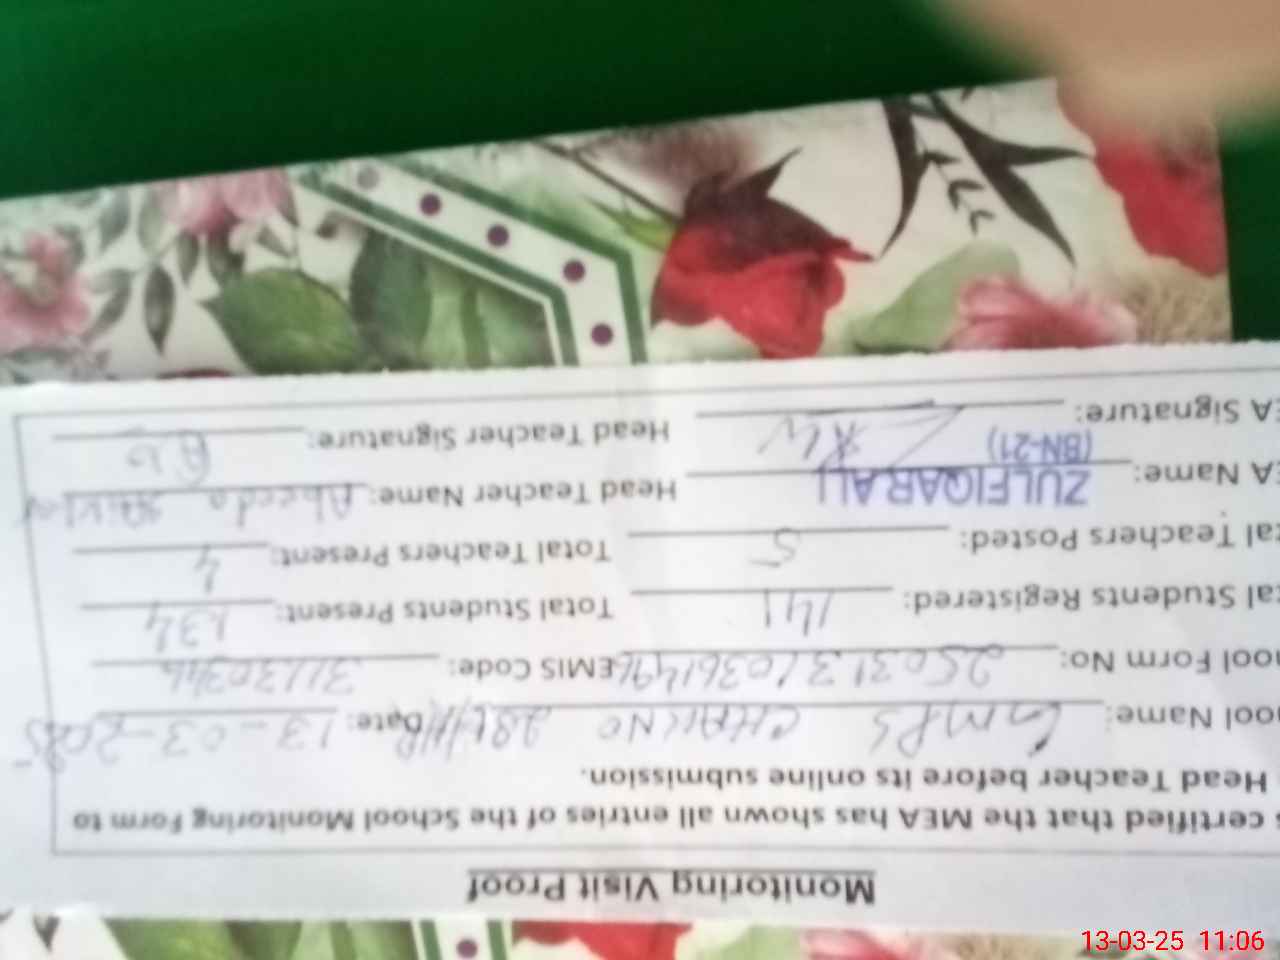 Monitoring Visit Proof
certified that the MEA has shown all entries of the School Monitoring Form to
Head Teacher before its online submission.
ool Name: GMPS CHAK NO 281/HR Date: 13-03-2025
ool Form No: EMIS Code: 31130346
tal Students Registered: 141 Total Students Present: 134
tal Teachers Posted: 5 Total Teachers Present: 4
EA Name: ZULFIQAR ALI Head Teacher Name: Abeeda
(BN-21)
EA Signature: Head Teacher Signature:
13-03-25 11:06